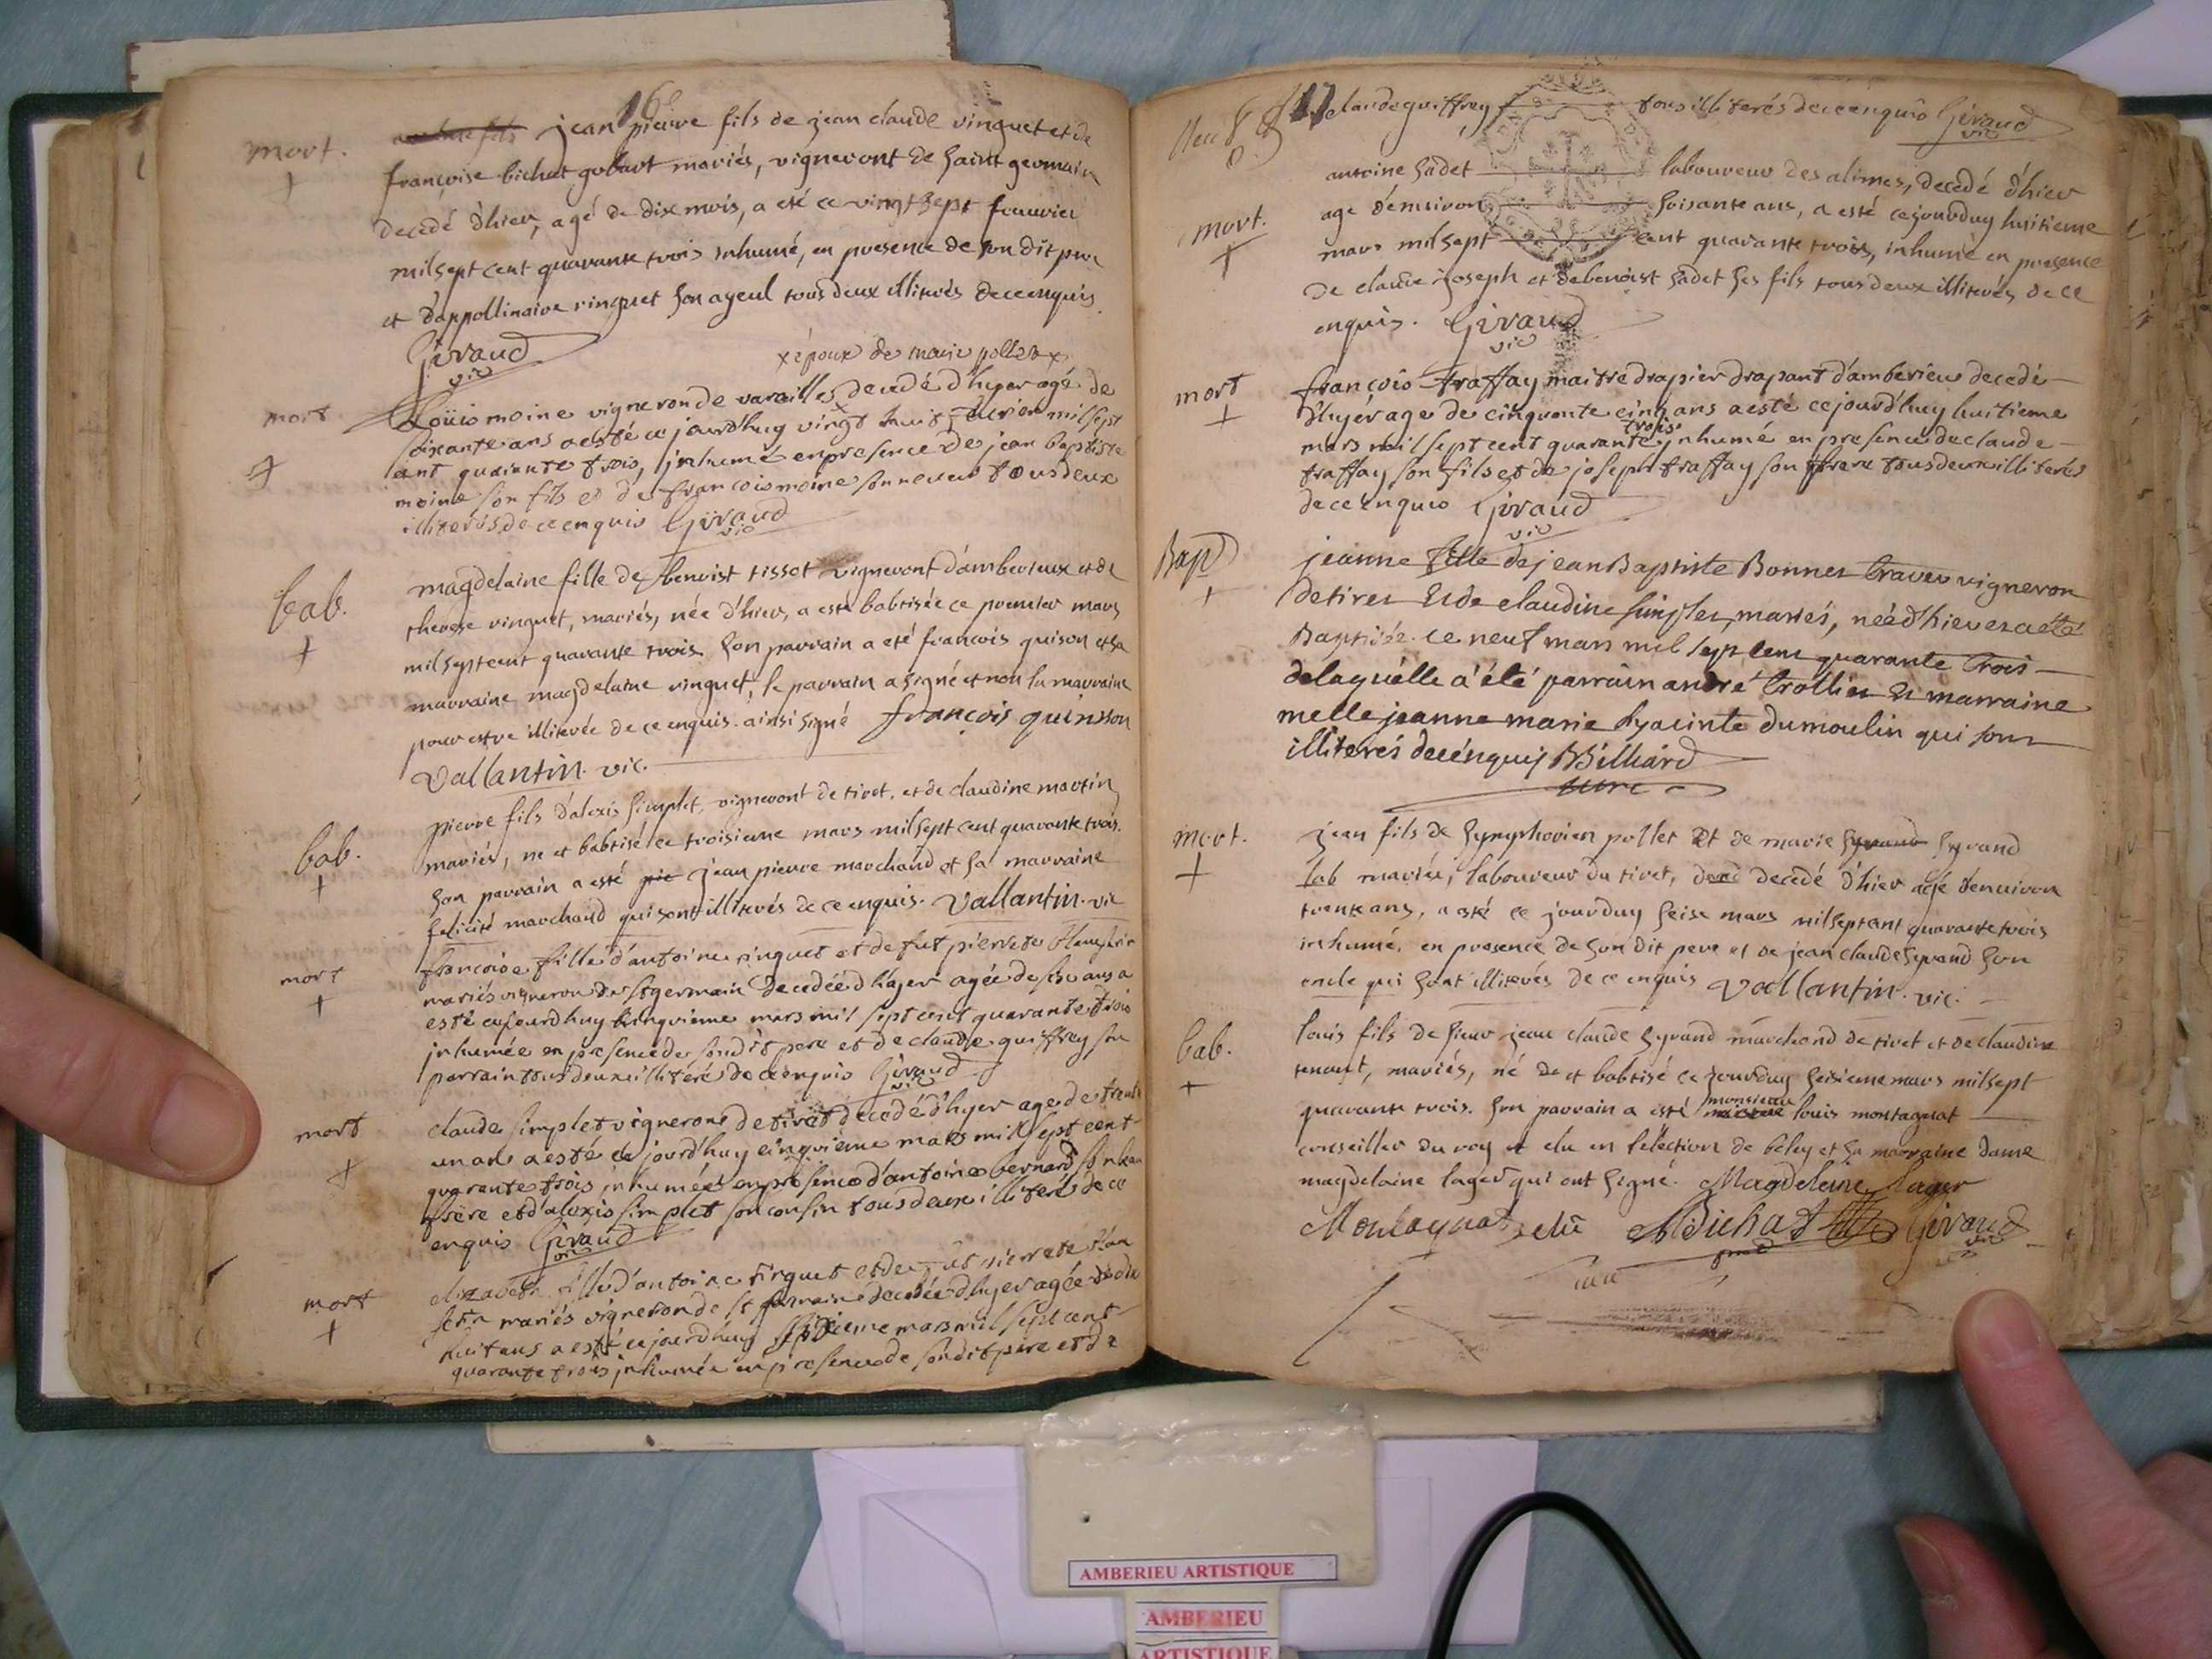 16
mort.
jean pierre fils de jean claude vinguet et de
françoise bichat gobart mariés, vigneront de saint germain
decedé d'hier, agé de dix mois, a eté ce vingt sept fevrier
mil sept cent quarante trois inhumé, en presence de son dit pere
et d'appollinaire vinguet son ayeul tous deux illiterés de ce enquis.
Giraud
vic
x époux de marie pollet x
mort
Loüis moine vigneron de vareilles x decedé d'hyer agé de
soixante ans a esté ce jourd'huy vingt huit fevrier mil sept
cent quarante trois, inhumé en presence de jean baptiste
moine son fils et de francois moine son neveu tous deux
illiterés de ce enquis Giraud
vic
bab.
magdelaine fille de benoist tissot vigneront d'amberieux et de
therese vinguet, mariés, née d'hier, a esté babtisée ce premier mars
mil sept cent quarante trois son parrain a eté francois quison et sa
marraine magdelaine vinguet, le parrain a signé et non la marraine
pour estre illiterée de ce enquis. ainsi signé françois quinson
Vallantin. vic.
bab.
pierre fils d'alexis simplet, vigneront de tiret, et de claudine martin
mariés, ne et babtisé ce troisieme mars mil sept cent quarante trois.
son parrain a esté pie jean pierre marchand et sa marraine
felicité marchand qui sont illiterés de ce enquis. Vallantin. vic
mort
francoise fille d'antoine vinguet et de fut pierrete
mariés vigneron de st germain decedée d'hyer agée de six ans a
esté ce jourd'huy cinquieme mars mil sept cent quarante trois
inhumée en presence de son dit pere et de claude guiffrey son
parrain tous deux illiterés de ce enquis Giraud
vic
mort
claude simplet vigneron de tiret decedé d'hyer age de trente
un an a esté ce jourd'huy cinquieme mars mil sept cent
quarante trois inhumée en presence d'antoine bernard son beau
frere et d'alexis simplet son cousin tous deux illiterés de ce
enquis Giraud
vic
mort
elizabeth fille d'antoine vinguet et de fut pierrete
mariés vigneron de st germain decedée d'hyer agée de dix
huit ans a esté ce jourd'huy septieme mars mil sept cent
quarante trois inhumée en presence de son dit pere et de
17
claude guiffrey tous illiterés de ce enquis Giraud
vic
mort.
antoine sadet laboureur des alimes, decedé d'hier
age d'environ soisante ans, a esté ce jourduy huitieme
mars mil sept cent quarante trois, inhumé en presence
de claude joseph et de benoist sadet ses fils tous deux illiterés de ce
enquis. Giraud
vic
mort
françois traffay maitre drapier drapant d'amberieu decedé
d'hyer age de cinquante cinq ans a esté ce jourd'huy huitieme
trois
mars mil sept cent quarante inhumé en presence de claude
traffay son fils et de joseph traffay son frere tous deux illiterés
de ce enquis Giraud
vic
Bap
jeanne fille de jean Baptiste Bonnet vigneron
de tiret et de claudine simplet, mariés, née d'hier et a été
Baptisée ce neuf mars mil sept cent quarante trois
de laquélle a été parrain andré trollier et marraine
melle jeanne marie hyacinte dumoulin qui sont
illiterés de ce enquis Billiard
curé
mort.
jean fils de symphorien pollet Et de marie sirand
mariés, laboureur du tiret, decedé d'hier agé d'environ
trente ans, a esté ce jourduy seise mars mil sept cent quarante trois
inhumé, en presence de son dit pere et de jean claude syrand son
oncle qui sont illiterés de ce enquis Vallantin. vic.
bab.
louis fils de sieur jean claude syrand marchand de tiret et de claudine
tenant, mariés, né de et babtisé ce jourduy seisieme mars mil sept
monsieur
quarante trois. son parrain a esté louis montagnat
conseiller du roy et elu en l'élection de beley et sa marraine dame
magdelaine lager qui ont signé. Magdeleine lager
Montagnat, elu Michat Giraud
vic
AMBERIEU ARTISTIQUE
AMBERIEU
ARTISTIQUE